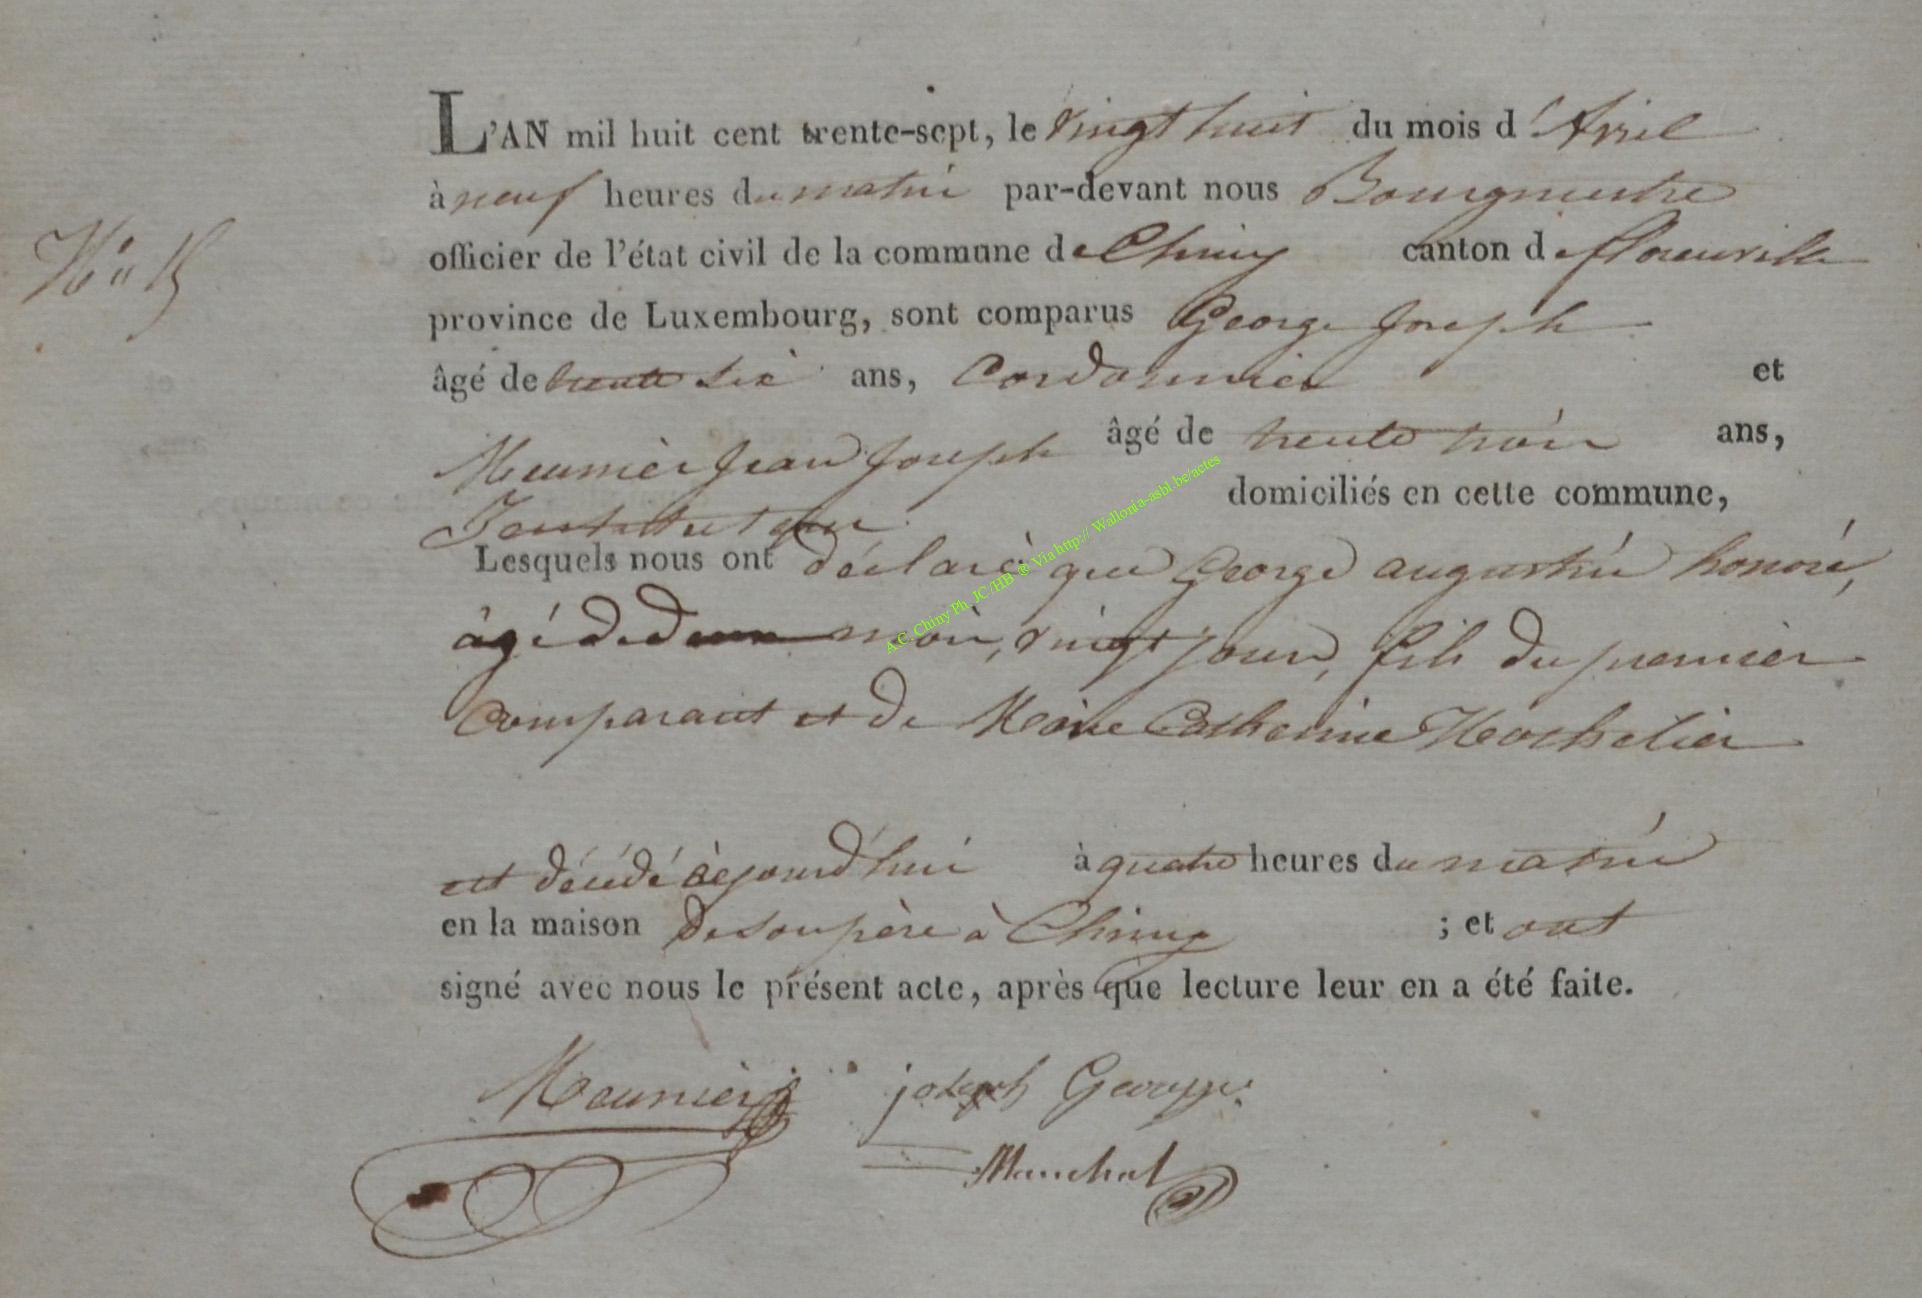 L'AN mil huit cent trente-sept, le vingt huit du mois d'Avril
à neuf heures du matin par-devant nous Bourgmestre
officier de l'état civil de la commune de Chiny canton de florenville
N° 15
province de Luxembourg, sont comparus George Joseph
âgé de trente six ans, Cordonnier et
Meunier Jean Joseph âgé de trente trois ans,
Instituteur domiciliés en cette commune,
Lesquels nous ont déclaré que George augustin honoré,
âgé de deux mois, vingt jours, fils du premier
comparant et de Marie Catherine
est décédé aujourd'hui à quatre heures du matin
en la maison de son père à Chiny ; et ont
signé avec nous le présent acte, après que lecture leur en a été faite.
Meunier joseph George
Marchal
A.C. Chiny Ph. JC /HB ® Via http:// Wallonia-asbl.be/actes